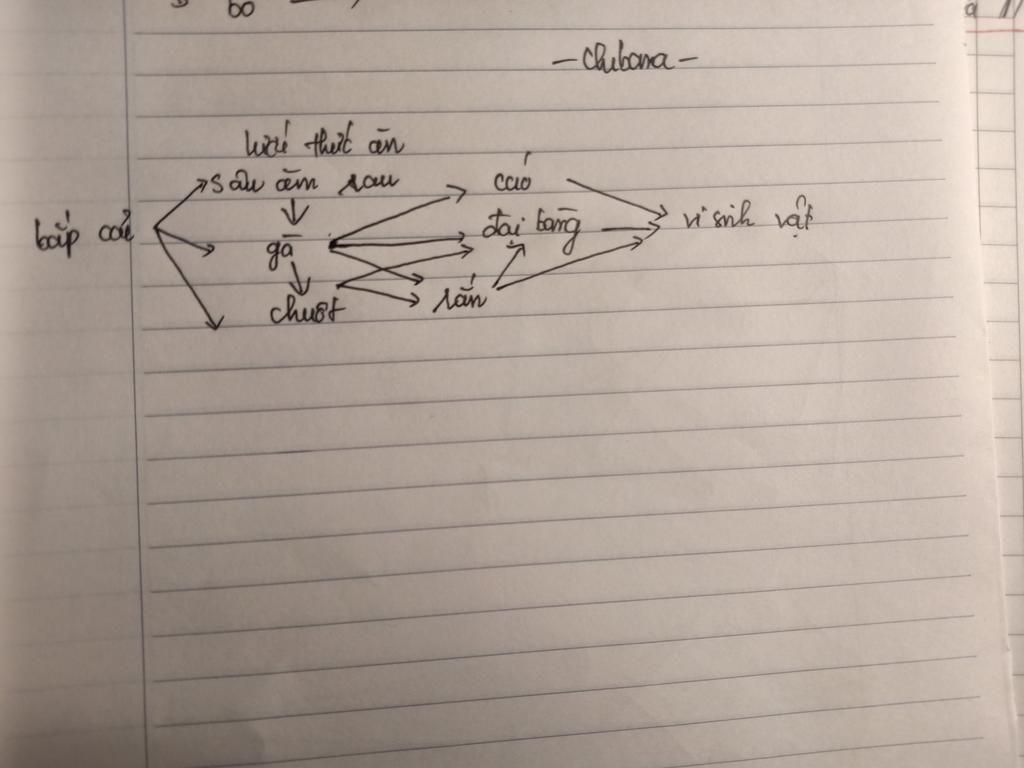 bo
- Chibana -
lưới thức ăn
sâu ăn rau
cáo
bắp cải
đại bàng
vi sinh vật
gà
chuột
rắn